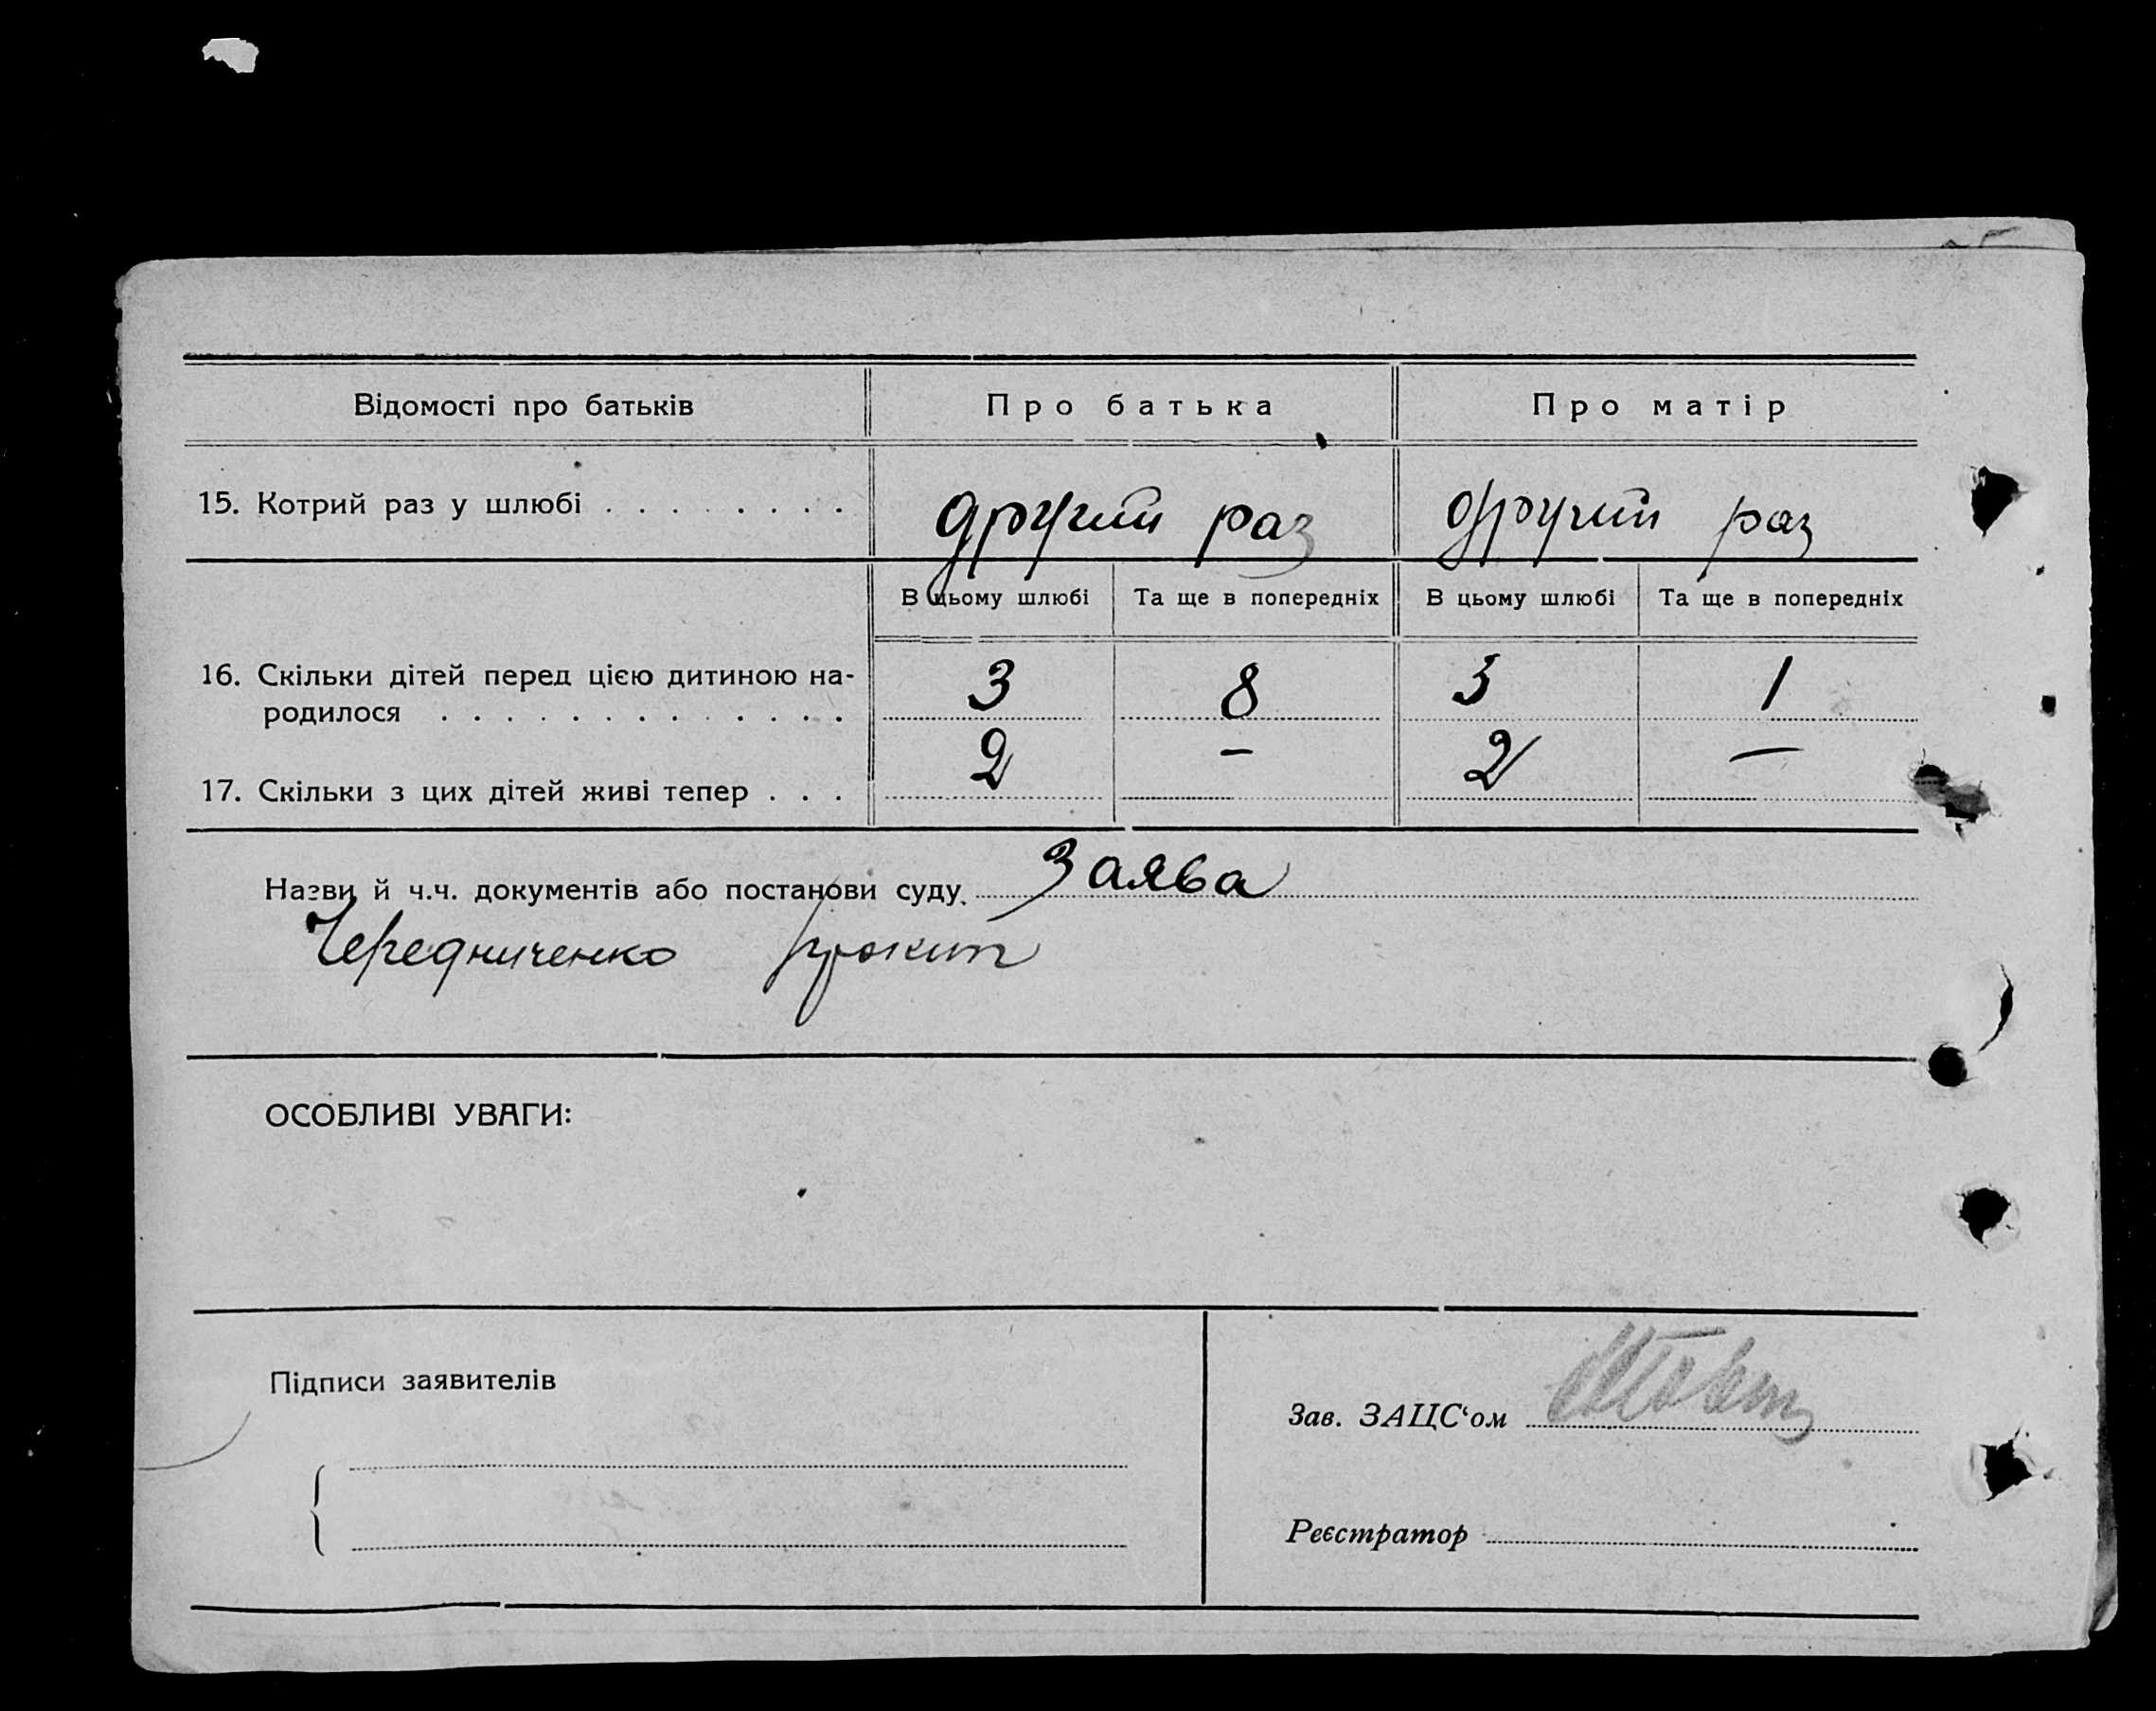 Відомості про батьків Про батька Про матір
15. Котрий раз у шлюбі . . . . . . . . другий раз другий раз
В цьому шлюбі Та ще в попередніх В цьому шлюбі Та ще в попередніх
16. Скільки дітей перед цією дитиною на-
родилося . . . . . . . . . . . . . 3 8 3 1
17. Скільки з цих дітей живі тепер . . . 2 – 2 –
Назви й ч.ч. документів або постанови суду. Заява
Чередниченко
ОСОБЛИВІ УВАГИ:
Підписи заявителів
Зав. ЗАЦС‘ом
Реєстратор